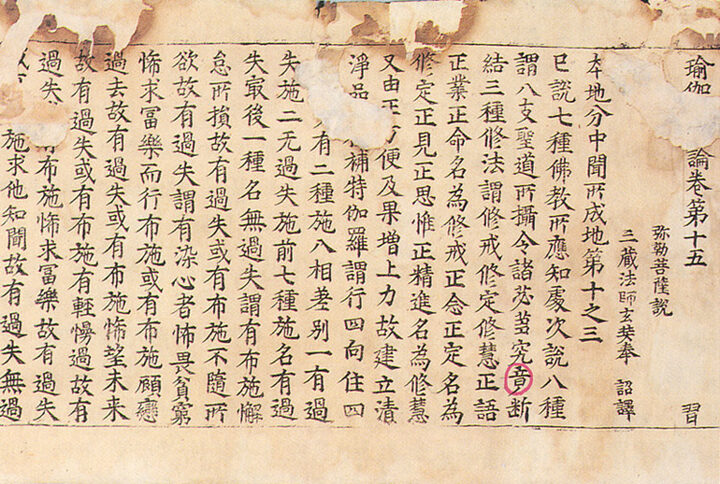 瑜伽 論卷第十五 習
弥勒菩薩說
三藏法師玄奘奉 詔譯
本地分中聞所成地第十之三
已說七種佛教所應知處次說八種
謂八支聖道所攝令諸苾蒭究竟断
結三種修法謂修戒修定修慧正語
正業正命名為修戒正念正定名為
修定正見正思惟正精進名為修慧
又由正方便及果增上力故建立清
淨品 補特伽羅謂行四向住四
有二種施八相差別一有過
失施二无過失施前七種施名有過
失㝡後一種名無過失謂有布施懈
怠所損故有過失或有布施不隨所
欲故有過失謂有染心者怖畏貧窮
悕求冨樂而行布施或有布施顧戀
過去故有過失或有布施悕望未来
故有過失或有布施有輕慢過故有
過失 有布施悕求冨樂故有過失
施求他知聞故有過失無過